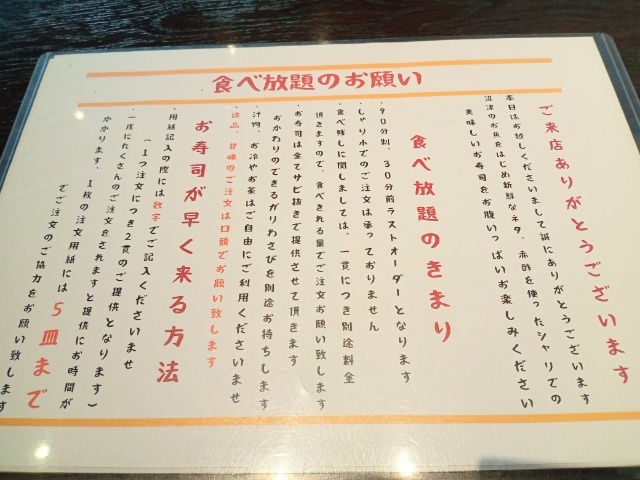 食べ放題のお願い
ご来店ありがとうございます
本日はお越しくださいまして誠にありがとうございます
沼津のお魚をはじめ新鮮なネタ、赤酢を使ったシャリでの
美味しいお寿司をお腹いっぱいお楽しみください
食べ放題のきまり
・90分制、30分前ラストオーダーとなります
・しゃり小でのご注文は承っておりません
・食べ残しに関しましては、一貫につき別途料金
頂きますので、食べきれる量でご注文お願い致します
・お寿司は全てサビ抜きで提供させて頂きます
おかわりのできるガリわさびを別途お持ちします
・汁物、お冷やお茶はご自由にご利用くださいませ
・逸品、甘味のご注文は口頭でお願い致します
お寿司が早く来る方法
・用紙記入の際には数字でご記入くださいませ
(1つ注文につき2貫のご提供となります)
・一度にたくさんのご注文をされますと提供にお時間が
かかります、1枚の注文用紙には5皿まで
でご注文のご協力をお願い致します